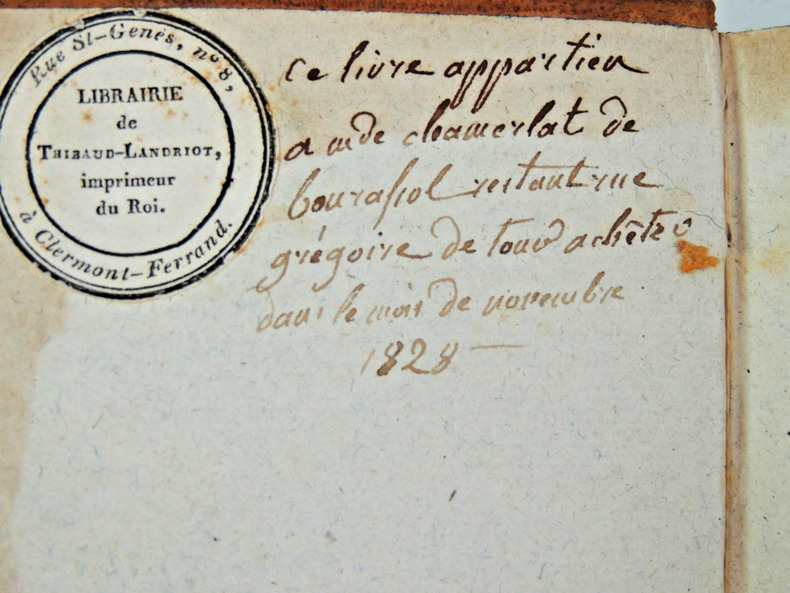 Rue St-Genès, nº 8,
LIBRAIRIE
de
THIBAUD-LANDRIOT,
imprimeur
du Roi.
à Clermont-Ferrand.
ce livre appartien
a mde chamerlat de
bourassol restant rue
grégoire de tour achêté
dans le mois de novembre
1828 —